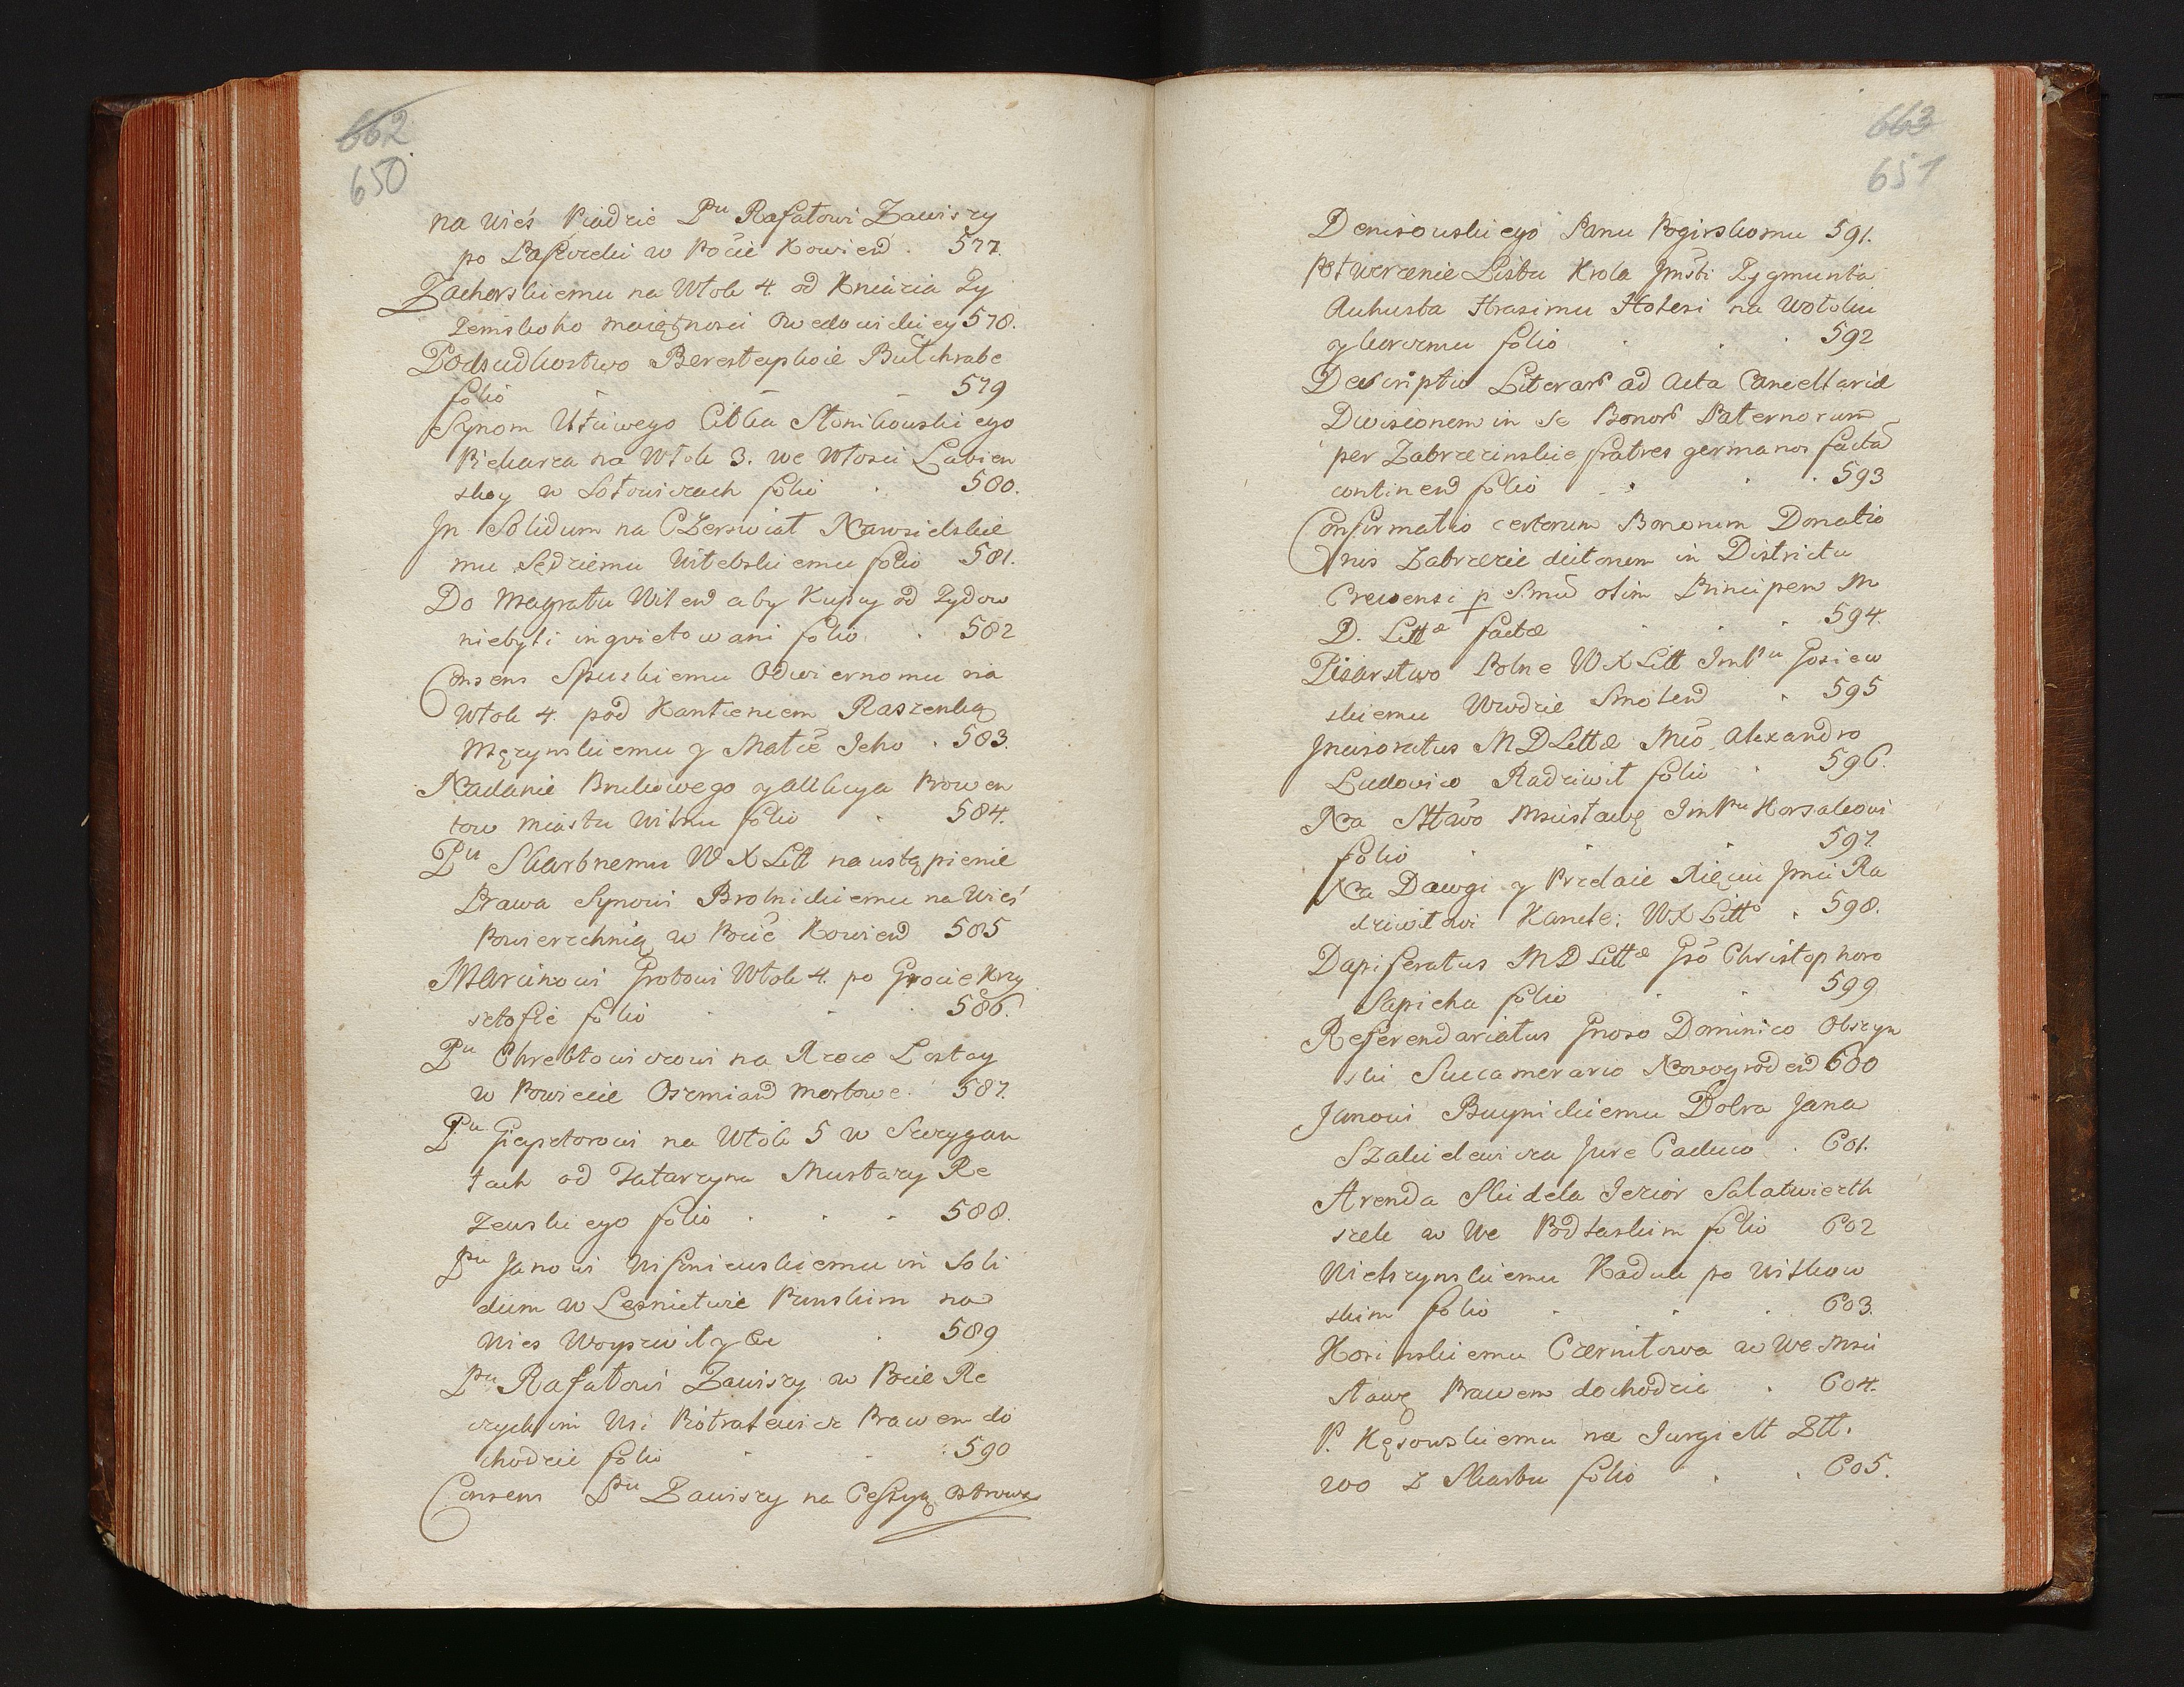 662
650
na Wieś Piadzie Pu Rafałowi Zawiszy
po Paszucki w Poċie Kowień. 577.
Zachorskiemu na Włok 4. od Kniazia Ży
żemskoho maiętnosci Owedowickiey 578.
Podsudkostwo Beresteyskoie Butchrabe
folio 579
Synom Uściwego Cibka Słonikowskiego
Piekarza na Włok 3. we Włosci Labien
skoy w Sołowiczach folio 580.
Jn Solidum na CZerswiat Nawsielskie
mu Sędziemu Witebskiemu folio 581.
Do Magratu Wilen aby Kupcy od Zydow
niebyli inqvietowani folio 582
Consens Spuskiemu Odwiernomu na
Włok 4. pod Kantieniem Raszenką
Męzynskiemu y Małċe Jeho. 583.
Nadanie Brukowego y allucya Prowen
tow Miastu Wilnu folio 584.
Pu Skarbnemu W X Litt na ustąpienie
Prawa Synowi Brolnickiemu na Wieś
Powierzchnią w Poċie Kowień 585
Marcinowi Grotowi Włok 4. po Grocie Krzy
sztofie folio 586.
Pu Chrebtowiczowi na Rzecz Lostay
w Powiecie Oszmiań Mortowe. 587.
Pu Giepetorowi na Włok 5 w Serzygan
tach od Tatarzyna Murtazy Re
zewskiego folio 588.
Pu Janowi Wiszniewskiemu in Soli
dum w Leśnictwie Punskim na
Wies Woyszwiły Ge 589
Pu Rafałowi Zawiszy w Pocie Re
czyckim Wsi Piotratewicz Prawem do
chodzie folio 590
Consens Pu Zawiszy na Cessyą Ostrowa
663
651
Denisouskiego Panu Pogirskomu 591.
Potwerzenie Listu Krola Jmśti Zygmunta
Auhusta Hrasimu Holesi na Wołoku
y korczmu folio 592
Descriptio Literar ad Acta Cancellariæ
Divisionem in se Bonor Paternorum
per Zabrzezinskie fratres germanos facta
continen folio 593
Confirmatio certorum Bonorum Donatio
nis Zabrzezie dictorum in Districtu
Crewensi p Smu olim Principem M
D. Littæ factæ 594.
Pisarstwo Polne W X Litt ImPu Gosiew
skiemu Wwdzie Smoleń 595
Jncisoratus M D Littæ Mco Alexandro
Ludovico Radziwił folio 596.
Na Sttwo Mscisławę ImPu Korsakowi
folio 597.
Na Dawgi y Przełaie Xięciu Jmci Ra
dziwiłowi Kancle: WX Litto 598.
Dapiferatus M D Littæ Gso Christophoro
Sapieha folio 599
Referendariatus Gnoso Dominico Obszyn
ski Succamerario Nowogroden 600
Janowi Buynickiemu Dobra Jana
SZakielewicza Jure Caduco. 601.
Arenda Skidela Jezior Salatwierth
szele w We Podlaskim folio 602
Wielszynskiemu Kaduk po Witkow
skim folio 603.
Kosinskiemu Czernitowa w We Msci
sławę Prawem dochodzie 604.
P. Kęsowskiemu na Jurgielt Ztt.
200 z Skarbu folio 605.